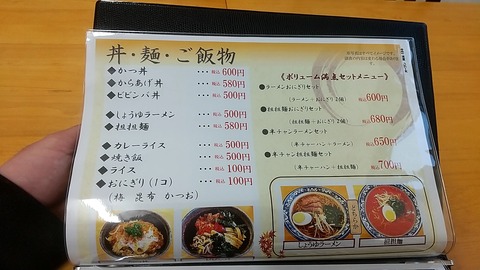 丼・麺・ご飯物
◆かつ丼 ・・・ 税込 600円
◆からあげ丼 ・・・ 税込 580円
◆ビビンバ丼 ・・・ 税込 500円
◆しょうゆラーメン ・・・ 税込 500円
◆担担麺 ・・・ 税込 580円
◆カレーライス 税込 500円
◆焼き飯 ・・・ 税込 500円
◆ライス 税込 100円
◆おにぎり(1コ) 税込 100円
(梅 昆布 かつお)
《ボリューム満点セットメニュー》
●ラーメンおにぎりセット
(ラーメン+おにぎり2個) 税込 600円
●担担麺おにぎりセット
(担担麺+おにぎり2個) 税込 680円
●半チャンラーメンセット
(半チャーハン+ラーメン) 税込 650円
●半チャン担担麺セット
(半チャーハン+担担麺) 税込 700円
しょうゆラーメン
担担麺